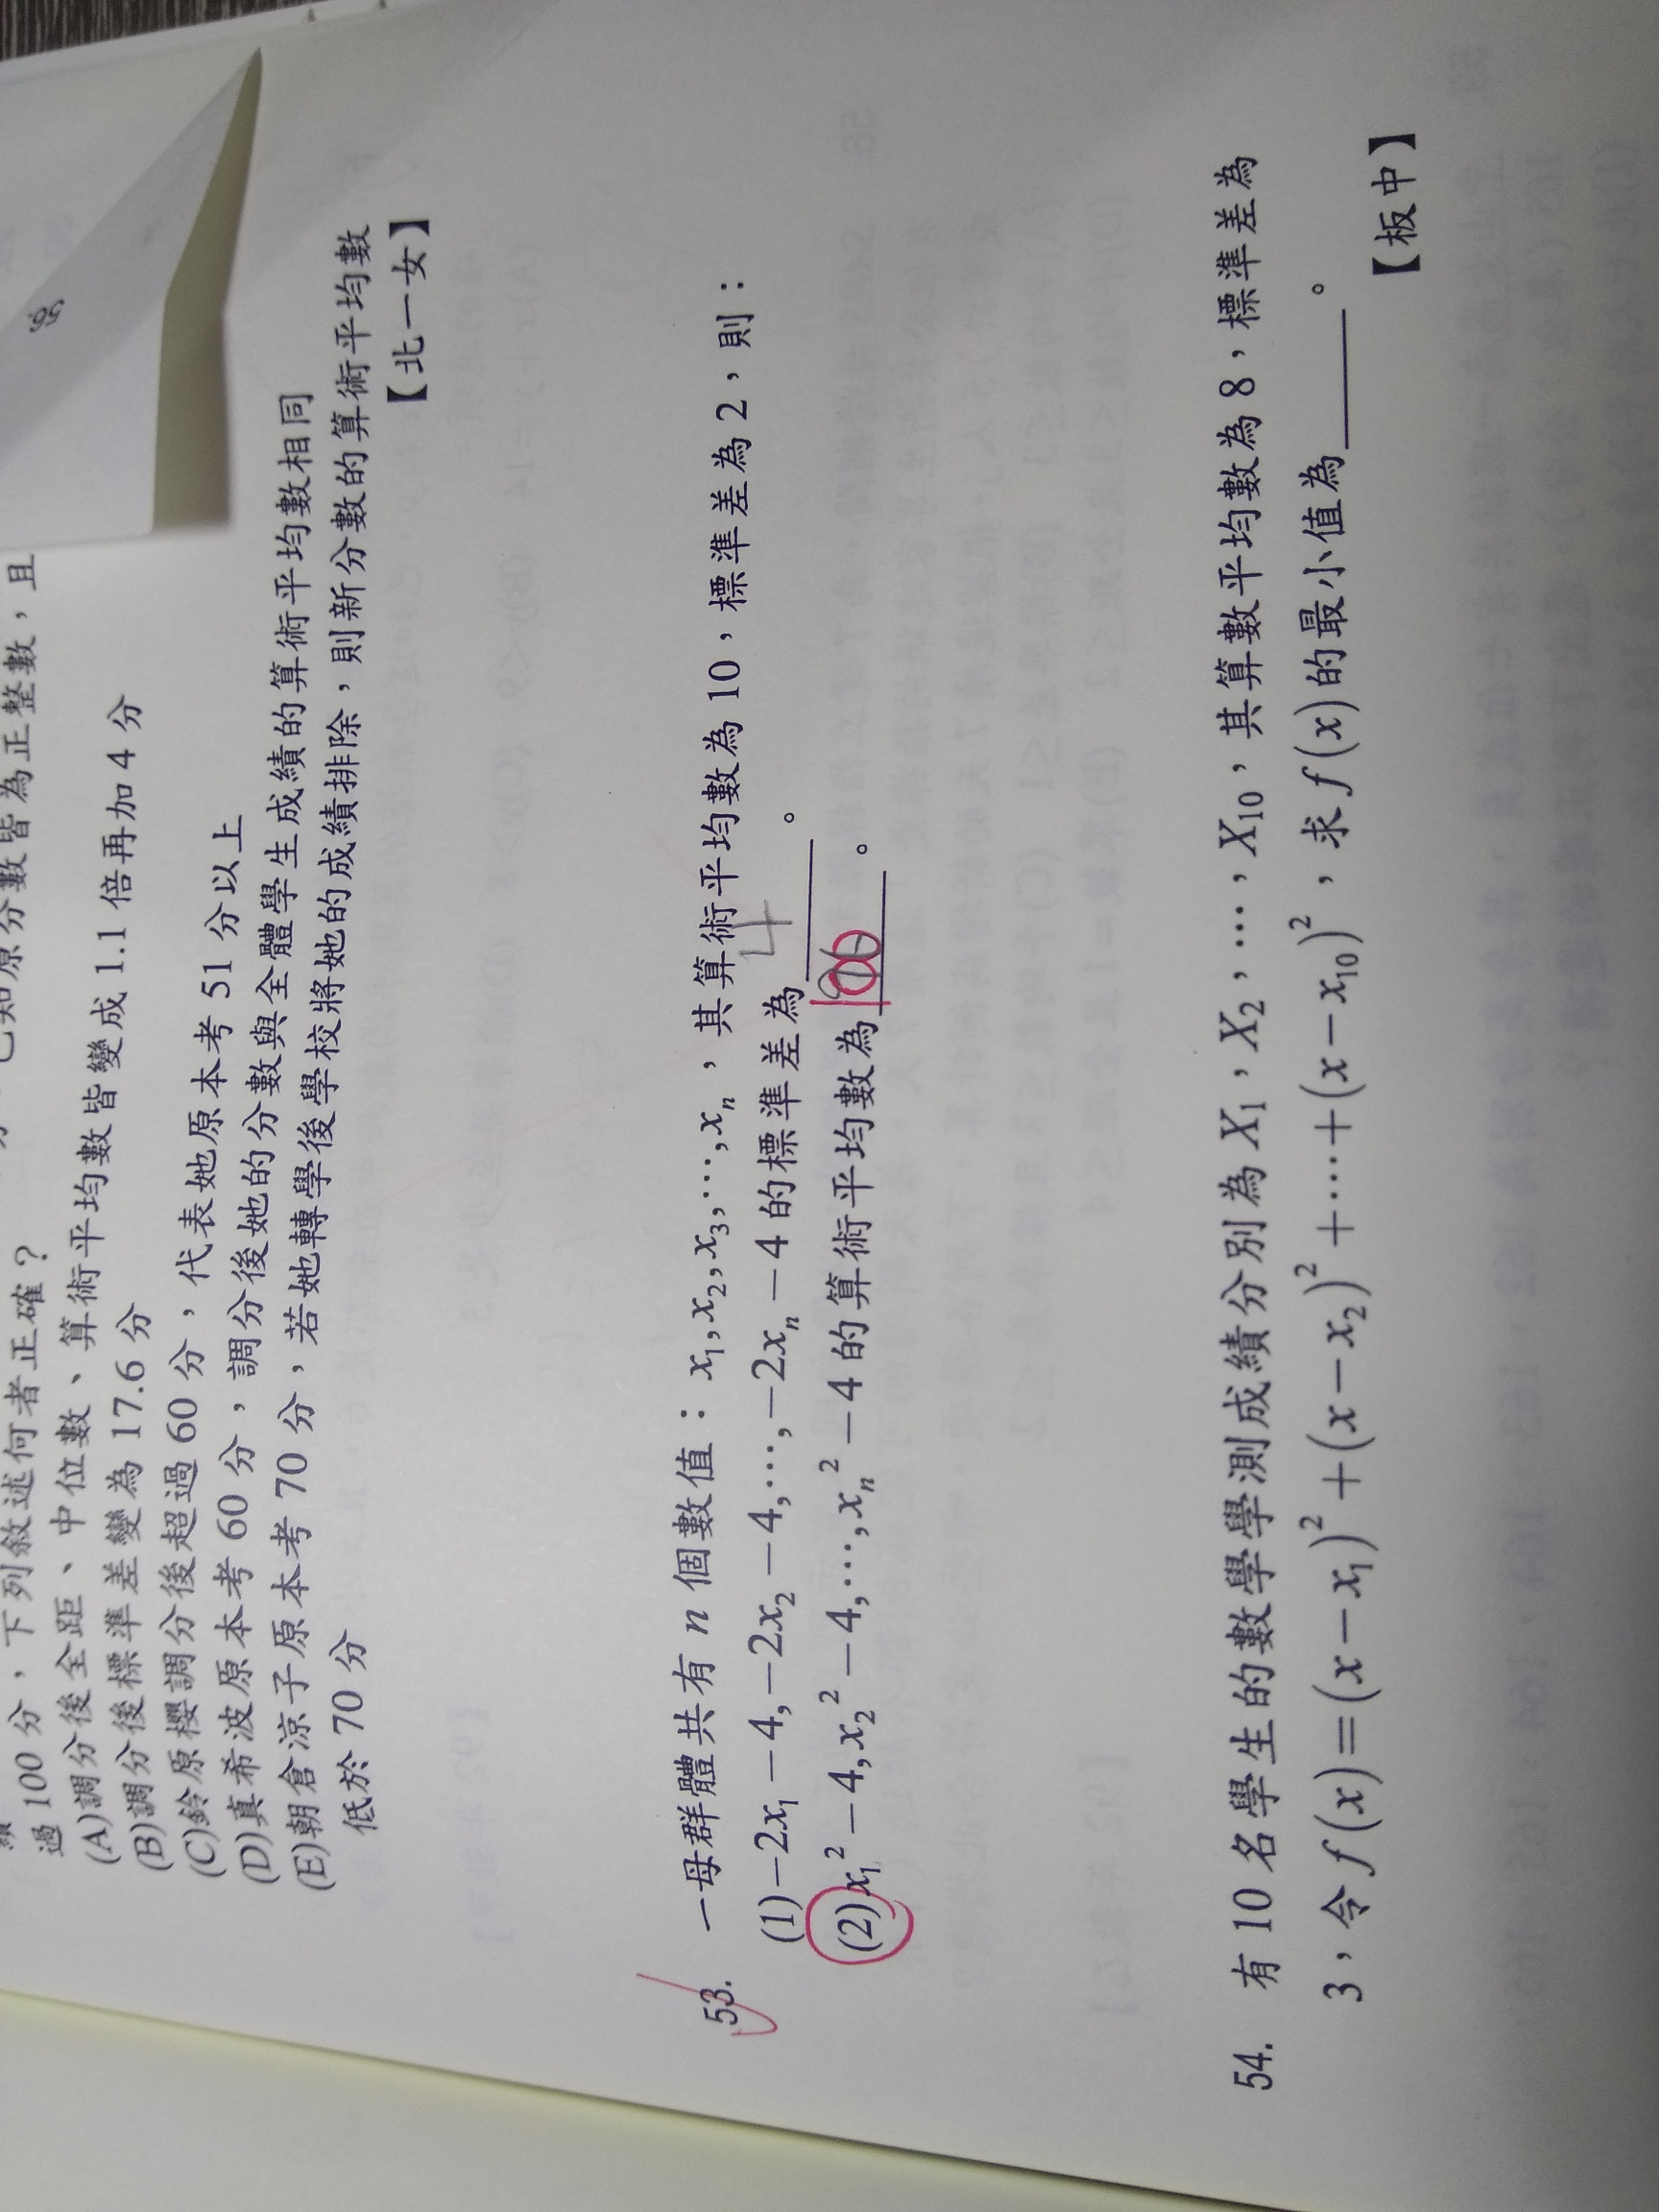 100分，下列敘述何者正確？
(A)調分後全距、中位數、算術平均數皆變成1.1倍再加4分
(B)調分後標準差變為17.6分
(C)鈴原櫻調分後超過60分，代表她原本考51分以上
(D)真希波原本考60分，調分後她的分數與全體學生成績的算術平均數相同
(E)朝倉涼子原本考70分，若她轉學後學校將她的成績排除，則新分數的算術平均數
低於70分
【北一女】
53. 一母群體共有n個數值：x₁,x₂,x₃,⋯,xₙ，其算術平均數為10，標準差為2，則：
(1)−2x₁−4,−2x₂−4,⋯,−2xₙ−4的標準差為 4 。
(2)x₁²−4,x₂²−4,⋯,xₙ²−4的算術平均數為 100 。
54. 有10名學生的數學學測成績分別為X₁，X₂，⋯，X₁₀，其算數平均數為8，標準差為
3，令f(x)=(x−x₁)²+(x−x₂)²+⋯+(x−x₁₀)²，求f(x)的最小值為____。
【板中】